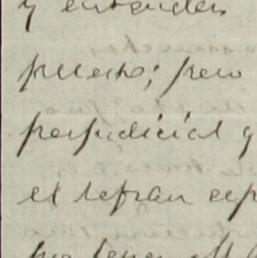 y entender
puerto; pero
perjudicial y
el refran esp
por tener